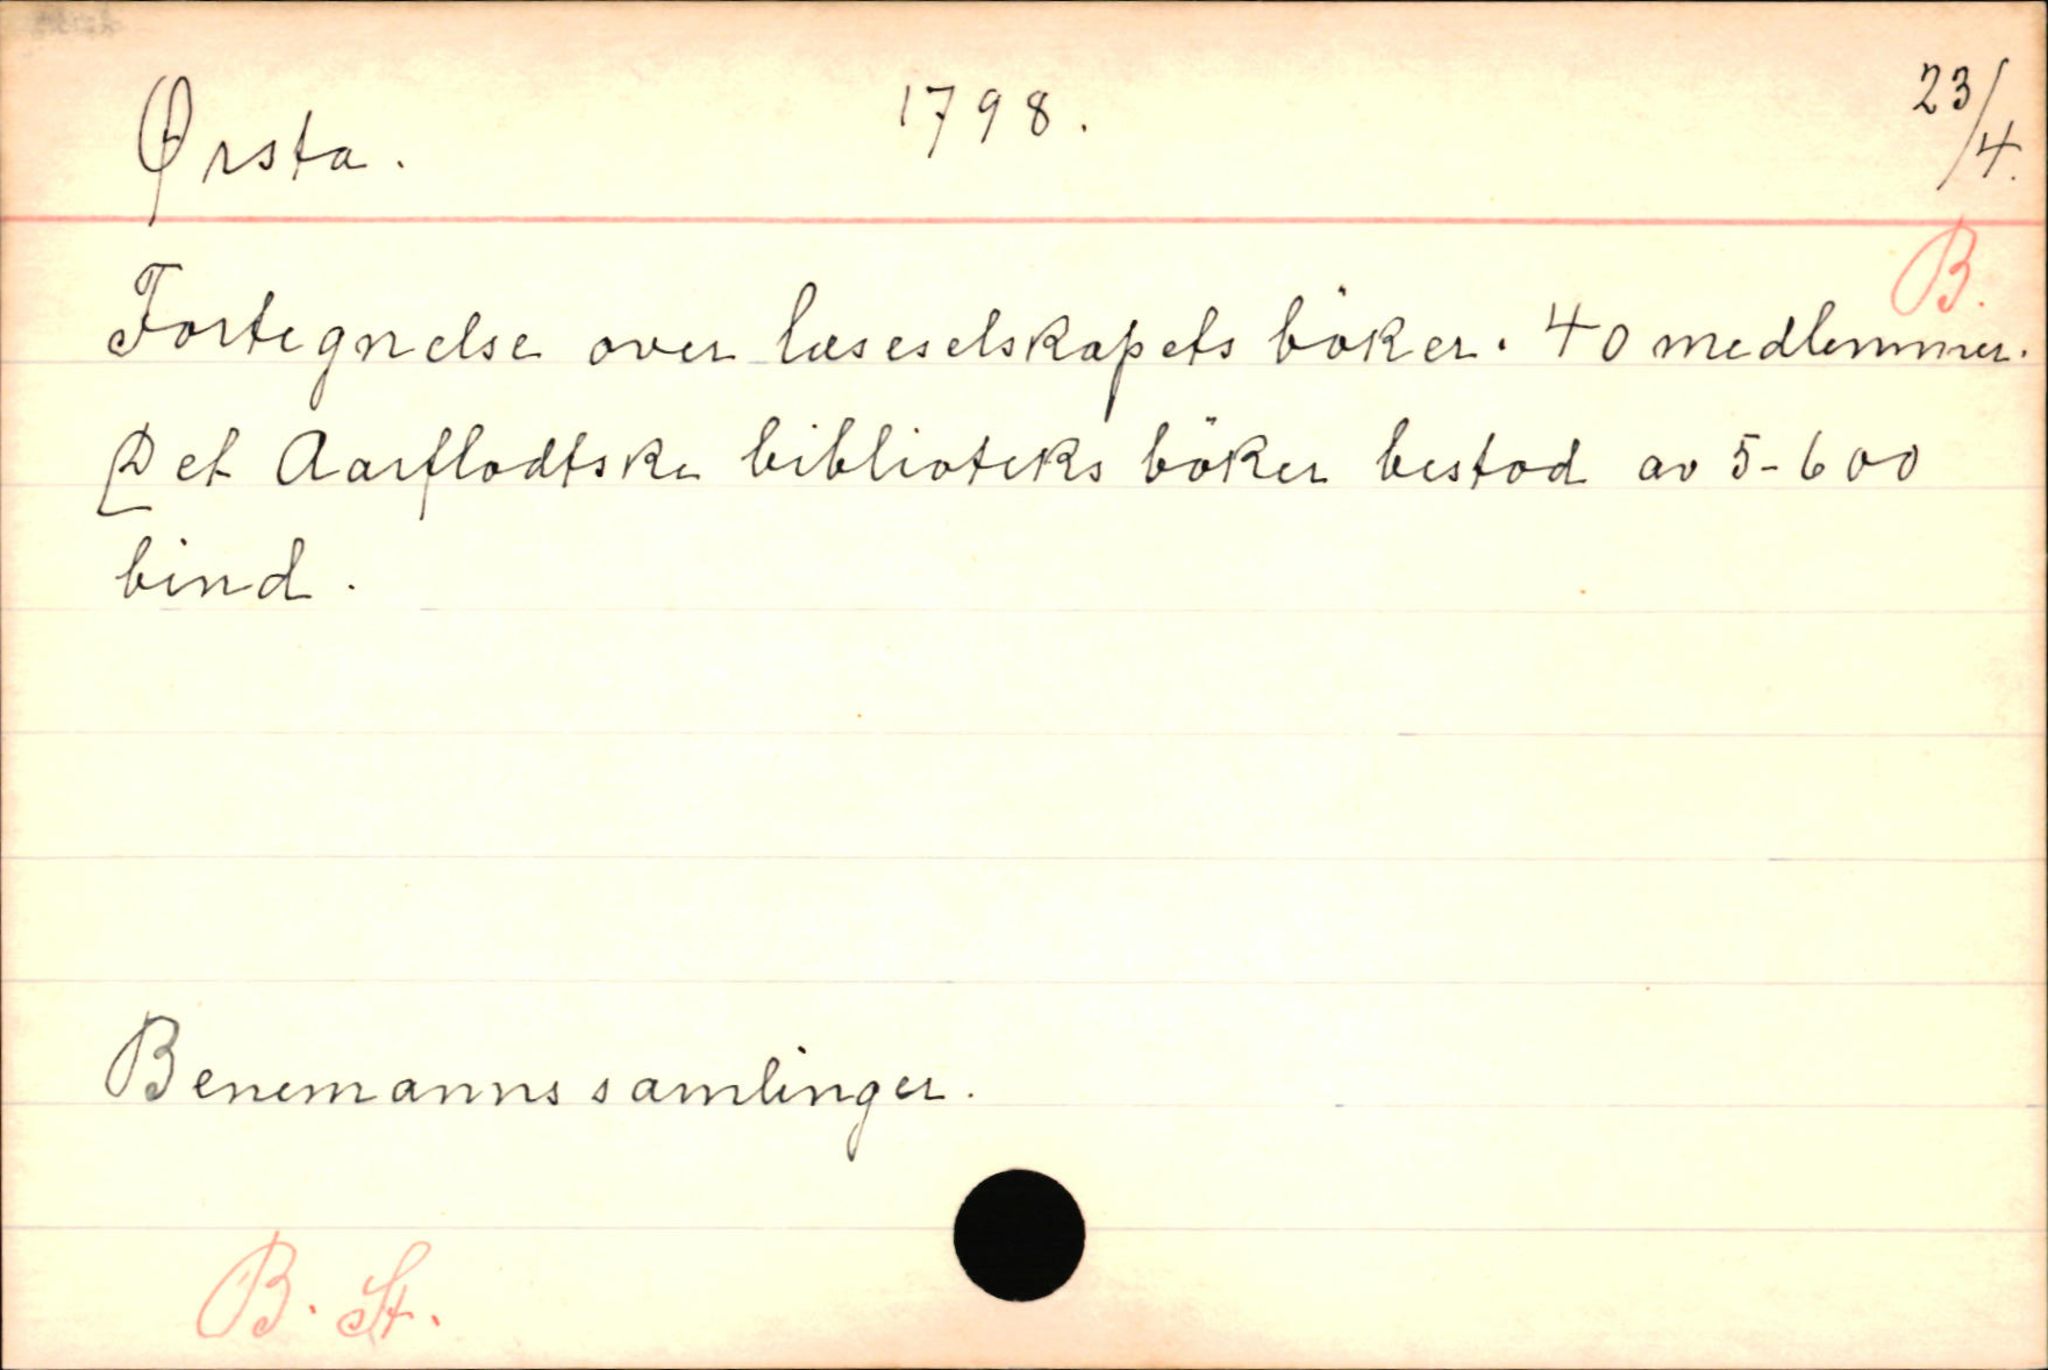 Ørsta. 1798. 23/4.
B.
Fortegnelse over læseselskapets böker. 40 medlemmer.
Det Aarflodtske biblioteks böker bestod av 5-600
bind.
Benemanns samlinger.
B. St.